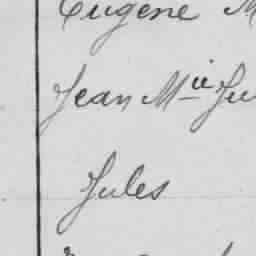 Eugène M
Jean Mie Ju
Jules